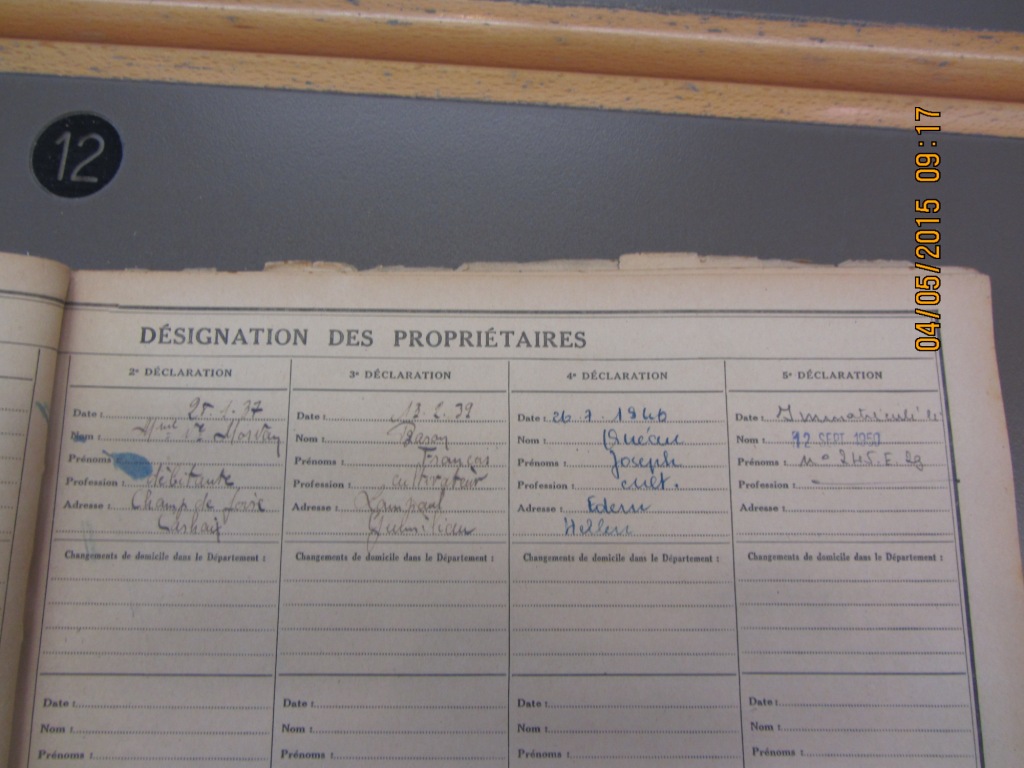 12
04/05/2015 09:17
DÉSIGNATION DES PROPRIÉTAIRES
2e DÉCLARATION
Date :
Nom :
Prénoms
Profession : débitante
Adresse : Champ de foire
Changements de domicile dans le Département :
Date :
Nom :
Prénoms :
3e DÉCLARATION
Date :
Nom :
Prénoms : François
Profession : cultivateur
Adresse : Lampaul
Changements de domicile dans le Département :
Date :
Nom :
Prénoms :
4e DÉCLARATION
Date : 26.7.1946
Nom : Quéau
Prénoms : Joseph
Profession : cult.
Adresse : Edern
Changements de domicile dans le Département :
Date :
Nom :
Prénoms :
5e DÉCLARATION
Date : Immatriculé le
Nom : 12 SEPT 1950
Prénoms : no
Profession :
Adresse :
Changements de domicile dans le Département :
Date :
Nom :
Prénoms :